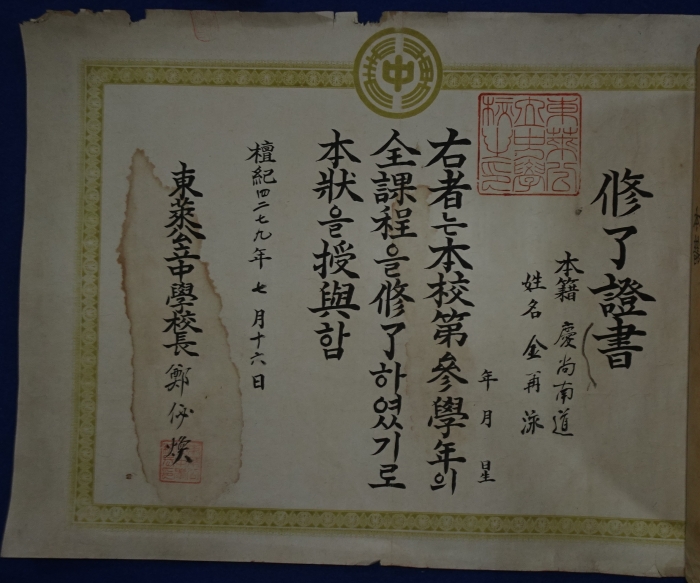 中
東萊公立中學校之印
修了證書
本籍 慶尚南道
姓名 金再泳
年 月 日生
右者는本校第參學年의
全課程을修了하였기로
本狀을授與함
檀紀四二七九年七月十六日
東萊公立中學校長 鄭 煥